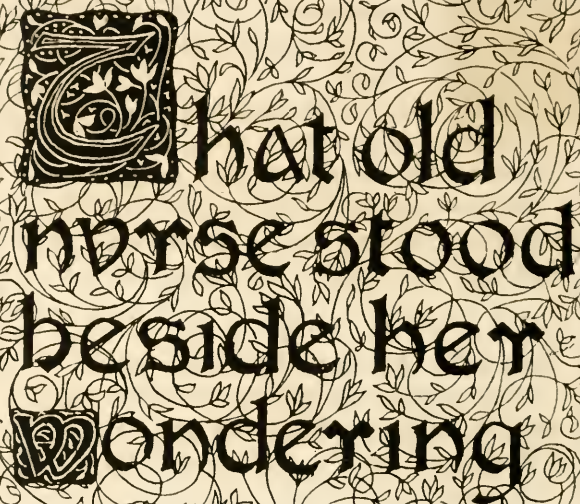 That old
nvrse stood
beside her
wondering